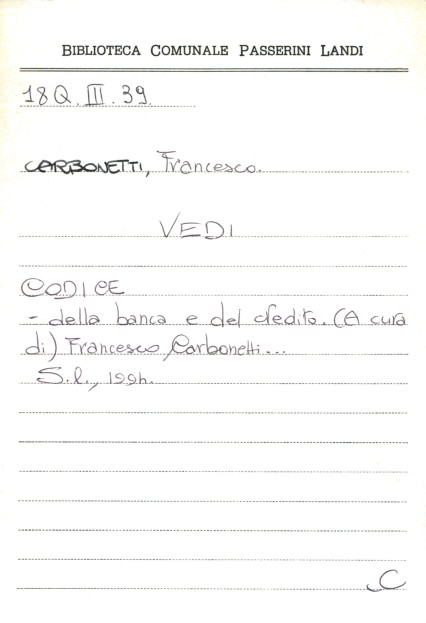 BIBLIOTECA COMUNALE PASSERINI LANDI
18Q. III. 39.
CARBONETTI, Francesco.
VEDI
CODICE
- della banca e del credito. (A cura
di) Francesco Carbonetti...
S.l., 1994.
C